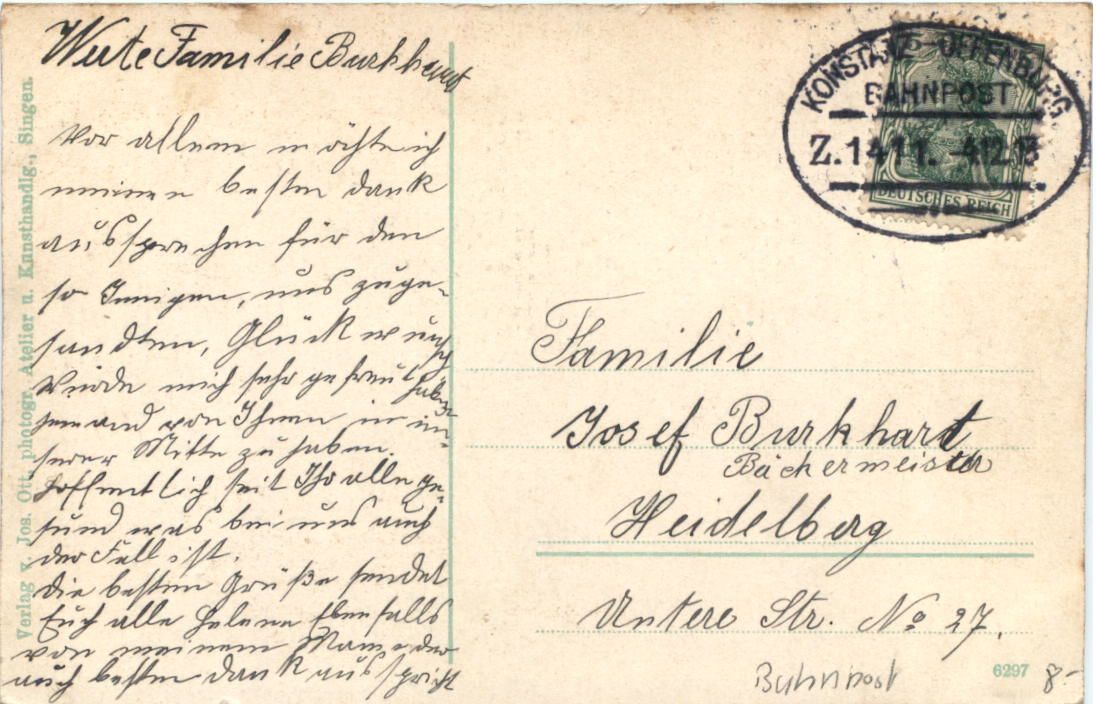 Werte Familie Burkhardt
Vor allem möchte ich
meinen besten dank
aussprechen für den
so Innigen, uns zuge-
sandten, Glückwunsch
Würde mich sehr gefreut haben
jemand von Ihnen in un-
serer Mitte zu haben.
Hoffentlich seit Ihr alle ge-
sund was bei uns auch
der Fall ist.
die besten Grüße sendet
Euch alle Helene Ebenfalls
von meinem Mann der
auch besten dank ausspricht
Verlag v. Jos. Ott, photogr. Atelier u. Kunsthandlg., Singen.
KONSTANZ - OFFENBURG
BAHNPOST
Z.1411. -4.12.13
DEUTSCHES REICH
Familie
Josef Burkhart
Bäckermeister
Heidelberg
Untere Str. No 27.
Bahnpost
6297
8.-